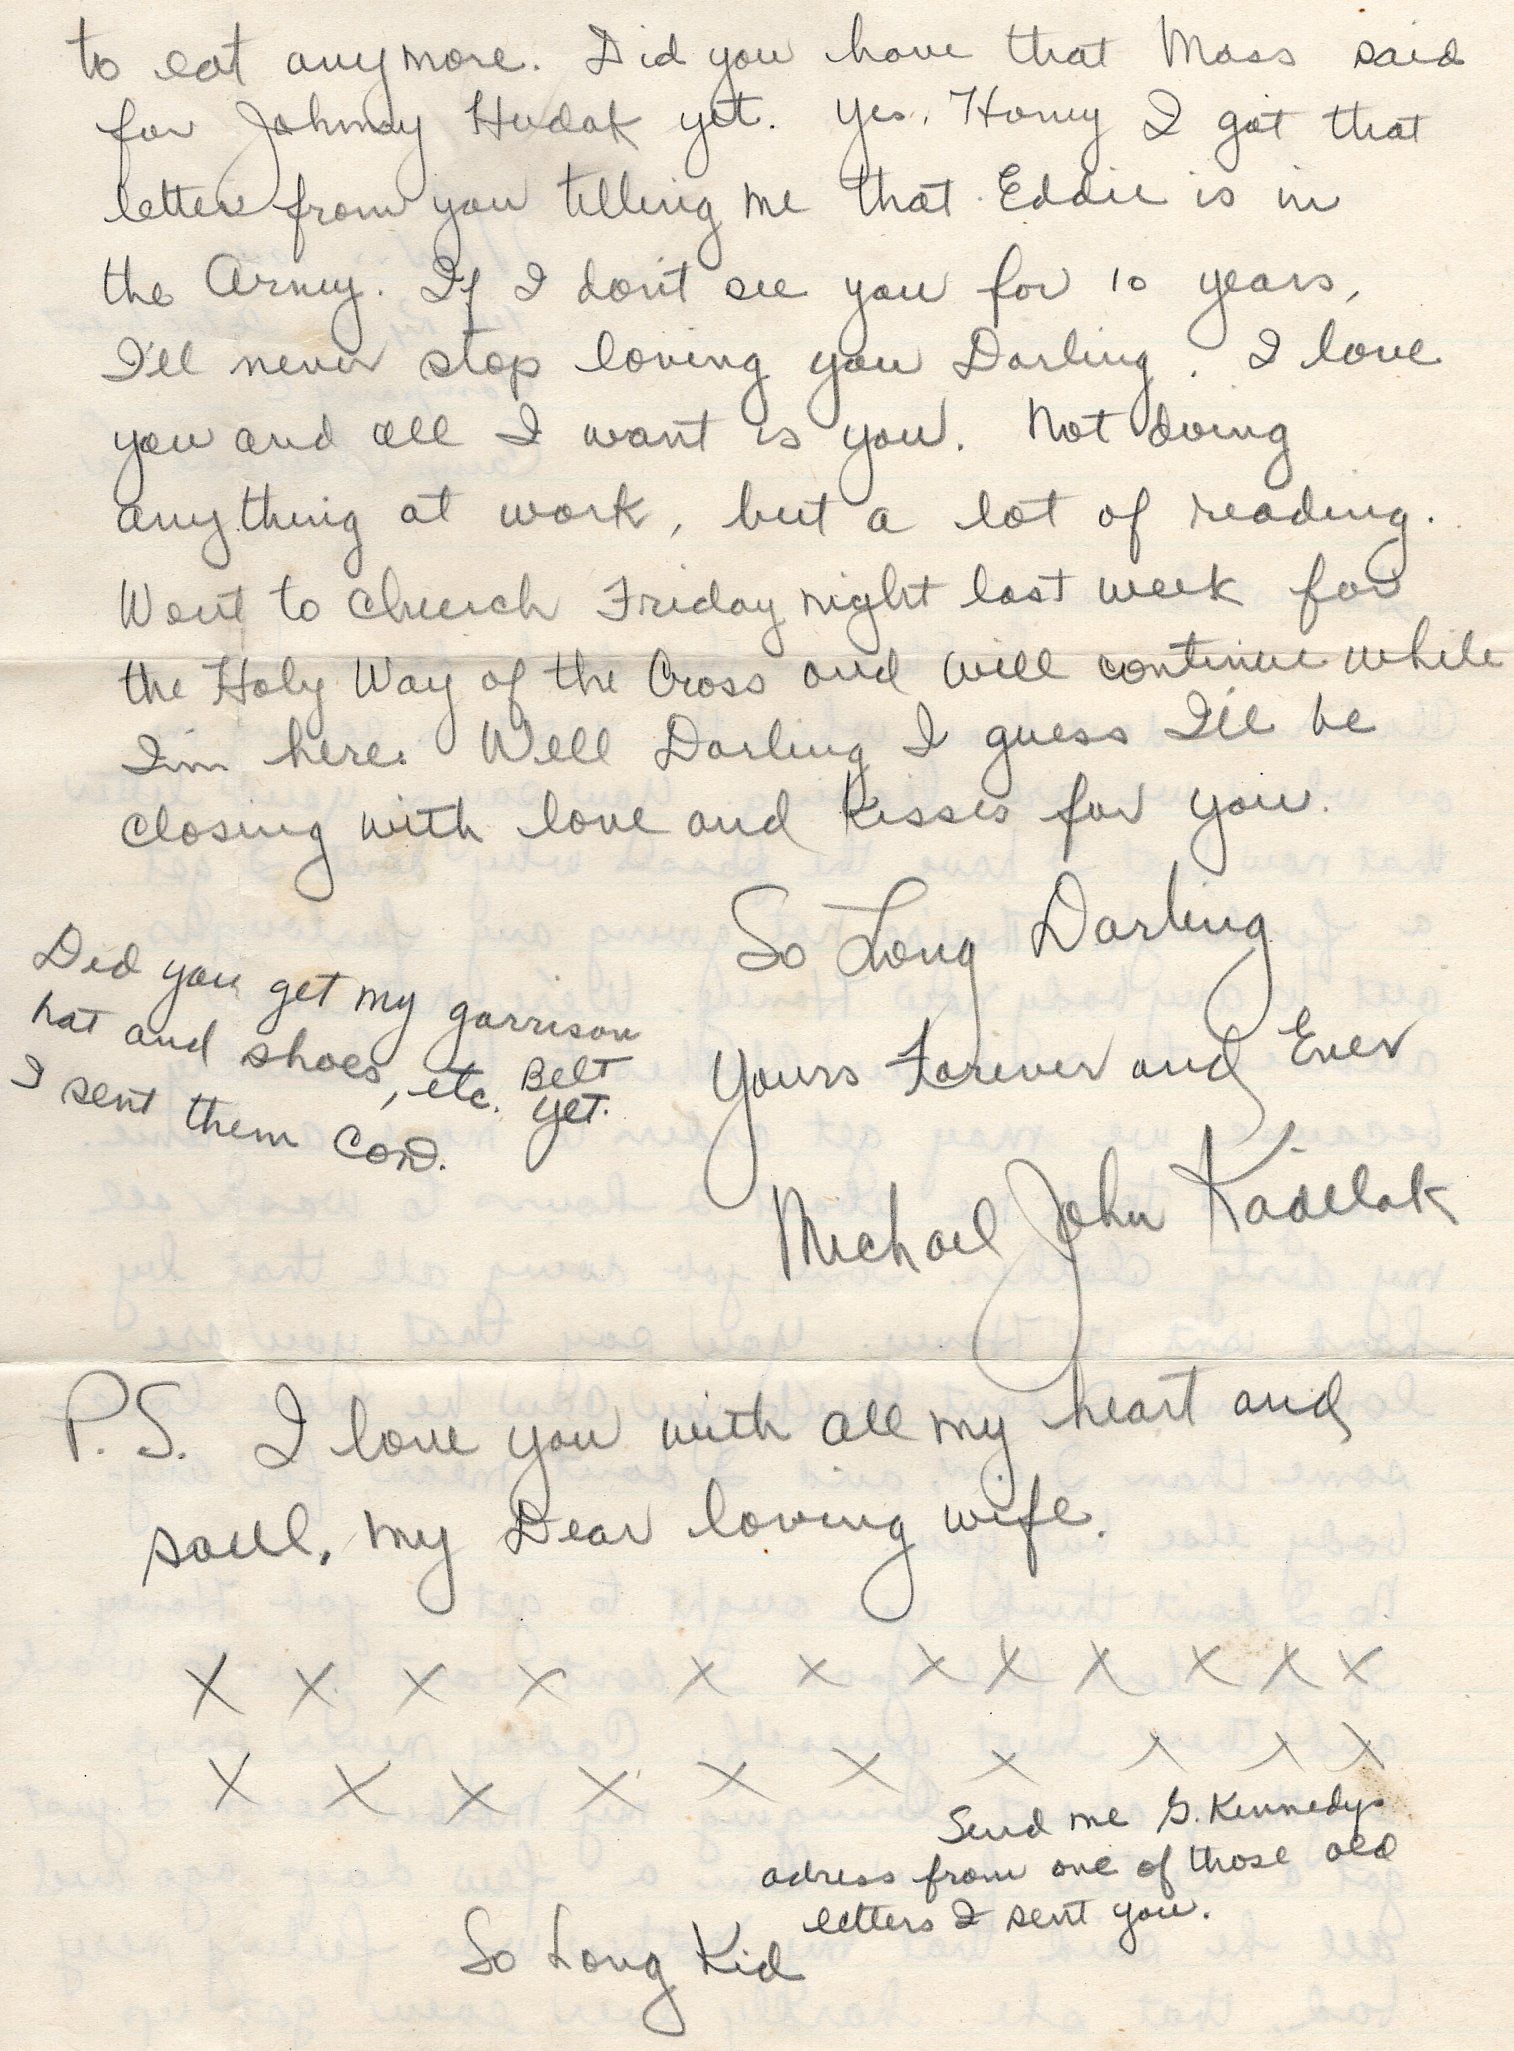 to eat anymore. Did you have that Mass said
for Johnny Hudak yet. Yes, Honey I got that
letter from you telling me that Eddie is in
the Army. If I don't see you for 10 years,
I'll never stop loving you Darling. I love
you and all I want is you. Not doing
anything at work, but a lot of reading.
Went to church Friday night last week for
the Holy Way of the Cross and will continue while
I'm here. Well Darling I guess I'll be
closing with love and kisses for you.
So Long Darling
Yours Forever and Ever
Michael John Kadelak
Did you get my garrison
hat and shoes, etc. Belt
yet.
I sent them COD.
P.S. I love you with all my heart and
soul, my Dear loving wife.
X X X X X X X X X X X X
X X X X X X X X X X
Send me G. Kennedys
adress from one of those old
letters I sent you.
So Long Kid